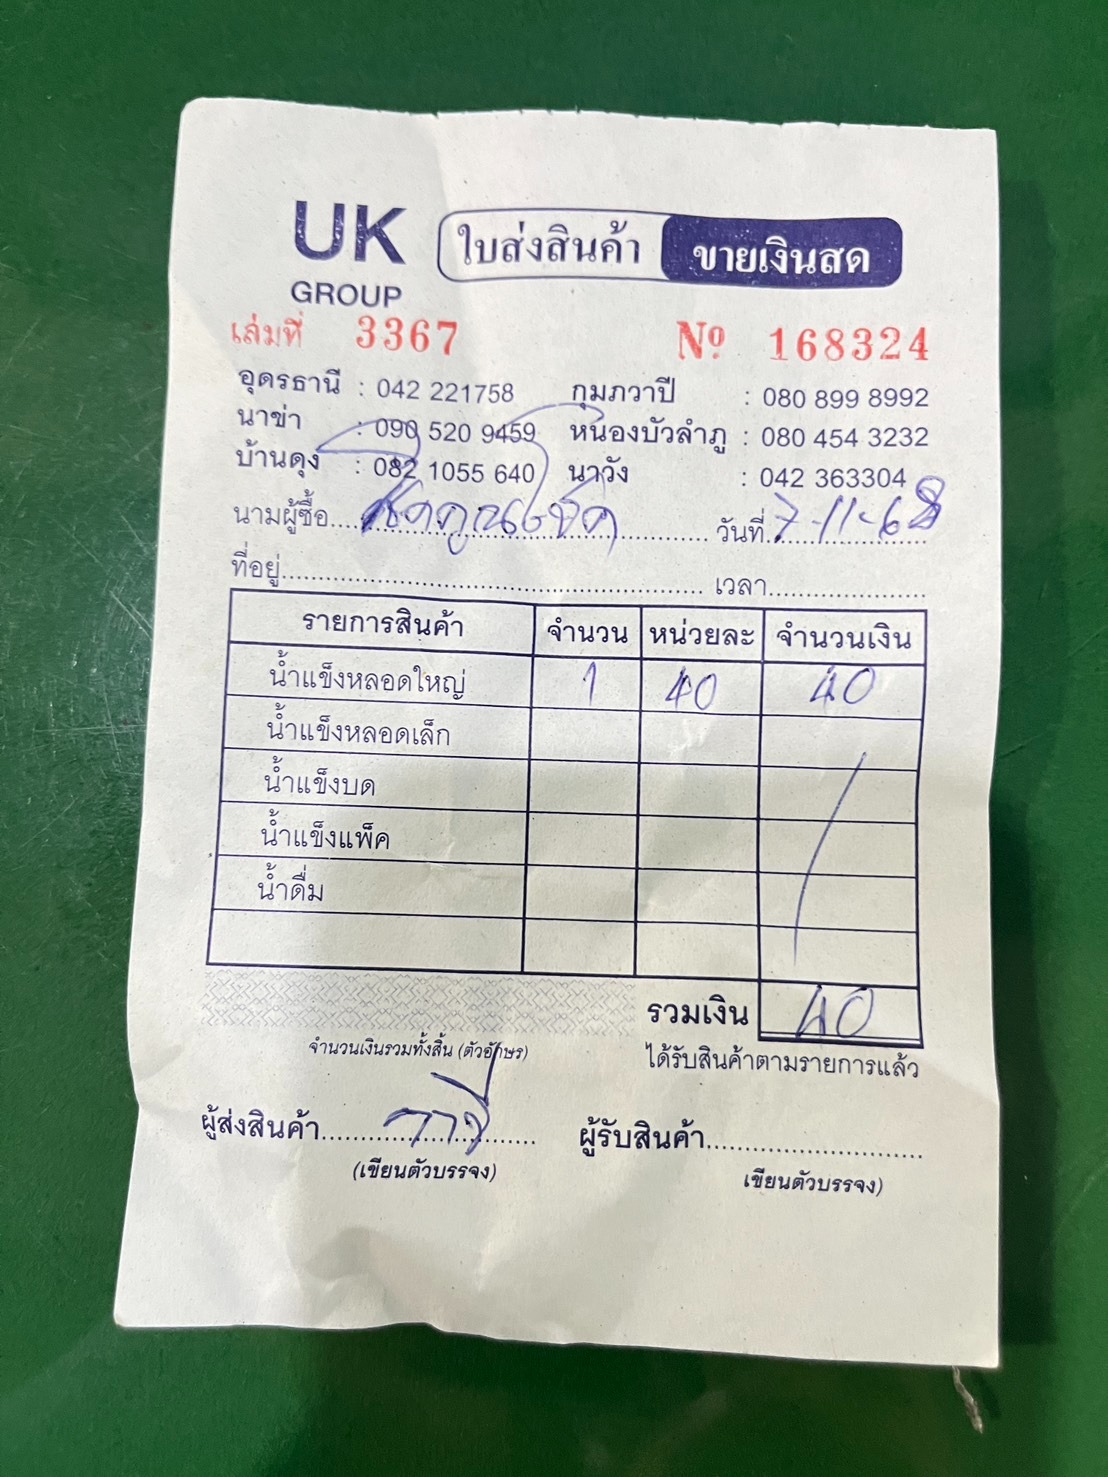 UK GROUP
ใบส่งสินค้า ขายเงินสด
เล่มที่ 3367 Nº 168324
อุดรธานี : 042 221758 กุมภวาปี : 080 899 8992
นาข่า : 090 520 9459 หนองบัวลำภู : 080 454 3232
บ้านดุง : 082 1055 640 นาวัง : 042 363304
นามผู้ซื้อ วันที่ 7-11-68
ที่อยู่ เวลา
รายการสินค้า จำนวน หน่วยละ จำนวนเงิน
น้ำแข็งหลอดใหญ่ 1 40 40
น้ำแข็งหลอดเล็ก
น้ำแข็งบด
น้ำแข็งแพ็ค
น้ำดื่ม
รวมเงิน 40
จำนวนเงินรวมทั้งสิ้น (ตัวอักษร) ได้รับสินค้าตามรายการแล้ว
ผู้ส่งสินค้า ผู้รับสินค้า
(เขียนตัวบรรจง) เขียนตัวบรรจง)